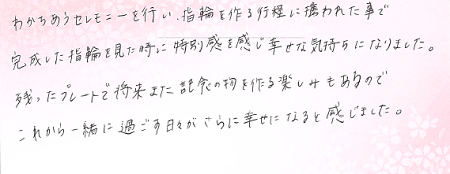 わかちあうセレモニーを行い、指輪を作る行程に携われた事で
完成した指輪を見た時に特別感を感じ幸せな気持ちになりました。
残ったプレートで将来また記念の物を作る楽しみもあるので
これから一緒に過ごす日々がさらに幸せになると感じました。